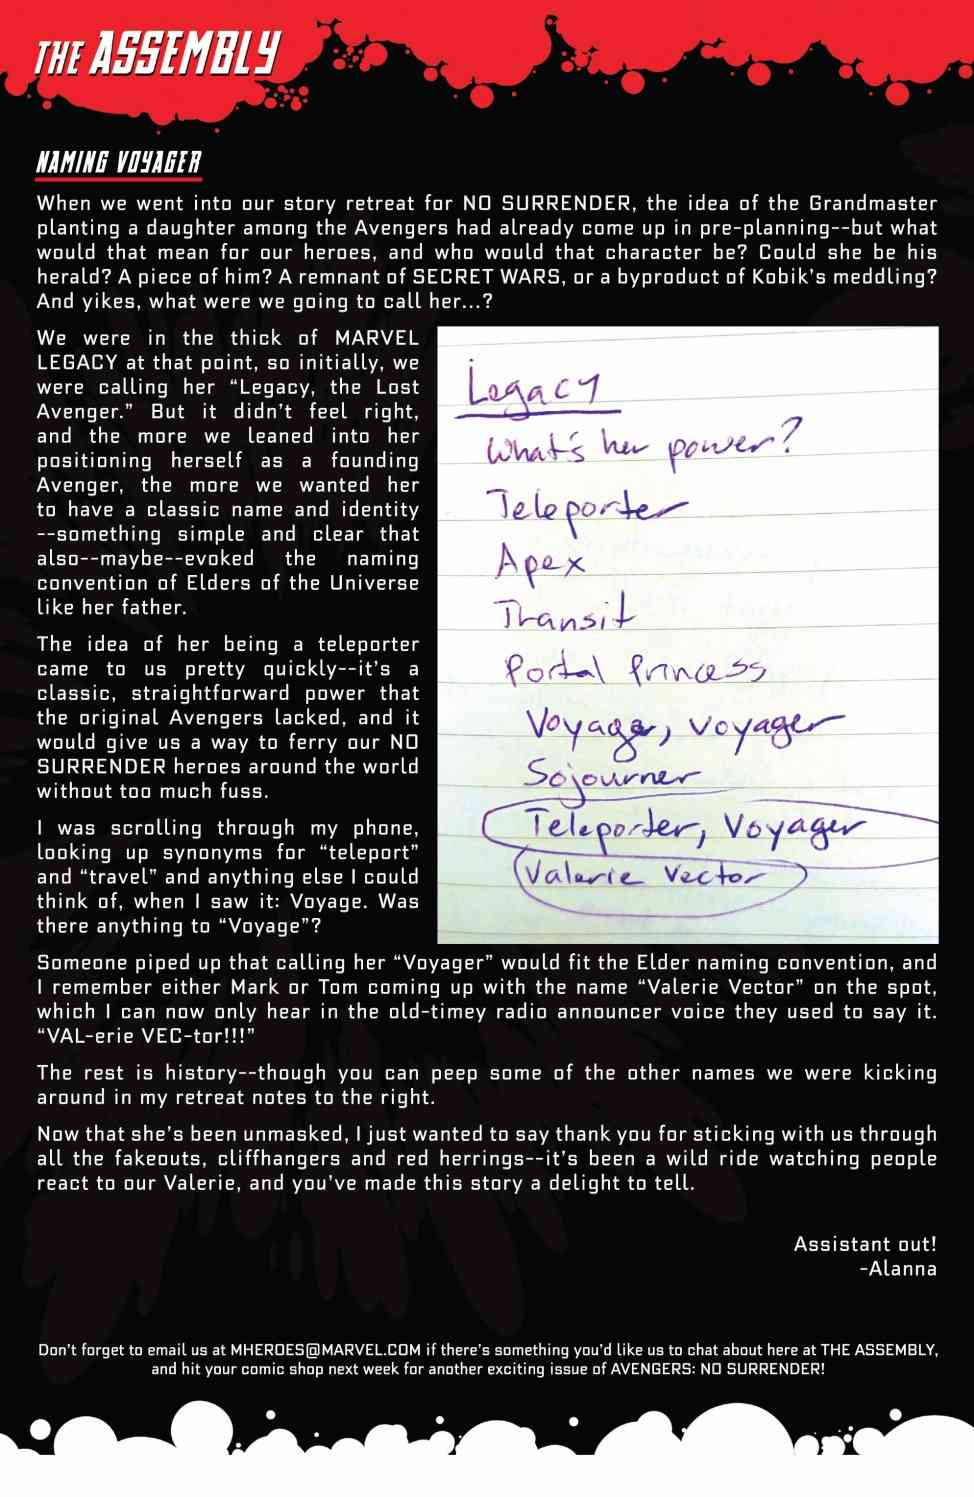 THE ASSEMBLY
NAMING VOYAGER
When we went into our story retreat for NO SURRENDER, the idea of the Grandmaster
planting a daughter among the Avengers had already come up in pre-planning--but what
would that mean for our heroes, and who would that character be? Could she be his
herald? A piece of him? A remnant of SECRET WARS, or a byproduct of Kobik's meddling?
And yikes, what were we going to call her...?
We were in the thick of MARVEL
LEGACY at that point, so initially, we
were calling her “Legacy, the Lost
Avenger.” But it didn't feel right,
and the more we leaned into her
positioning herself as a founding
Avenger, the more we wanted her
to have a classic name and identity
--something simple and clear that
also--maybe--evoked the naming
convention of Elders of the Universe
like her father.
The idea of her being a teleporter
came to us pretty quickly--it's a
classic, straightforward power that
the original Avengers lacked, and it
would give us a way to ferry our NO
SURRENDER heroes around the world
without too much fuss.
I was scrolling through my phone,
looking up synonyms for “teleport”
and “travel” and anything else I could
think of, when I saw it: Voyage. Was
there anything to “Voyage”?
Legacy
What's her power?
Teleporter
Apex
Transit
Portal Princess
Voyager, voyager
Sojourner
Teleporter, Voyager
Valerie Vector
Someone piped up that calling her “Voyager” would fit the Elder naming convention, and
I remember either Mark or Tom coming up with the name “Valerie Vector” on the spot,
which I can now only hear in the old-timey radio announcer voice they used to say it.
“VAL-erie VEC-tor!!!”
The rest is history--though you can peep some of the other names we were kicking
around in my retreat notes to the right.
Now that she's been unmasked, I just wanted to say thank you for sticking with us through
all the fakeouts, cliffhangers and red herrings--it's been a wild ride watching people
react to our Valerie, and you've made this story a delight to tell.
Assistant out!
-Alanna
Don't forget to email us at MHEROES@MARVEL.COM if there's something you'd like us to chat about here at THE ASSEMBLY,
and hit your comic shop next week for another exciting issue of AVENGERS: NO SURRENDER!